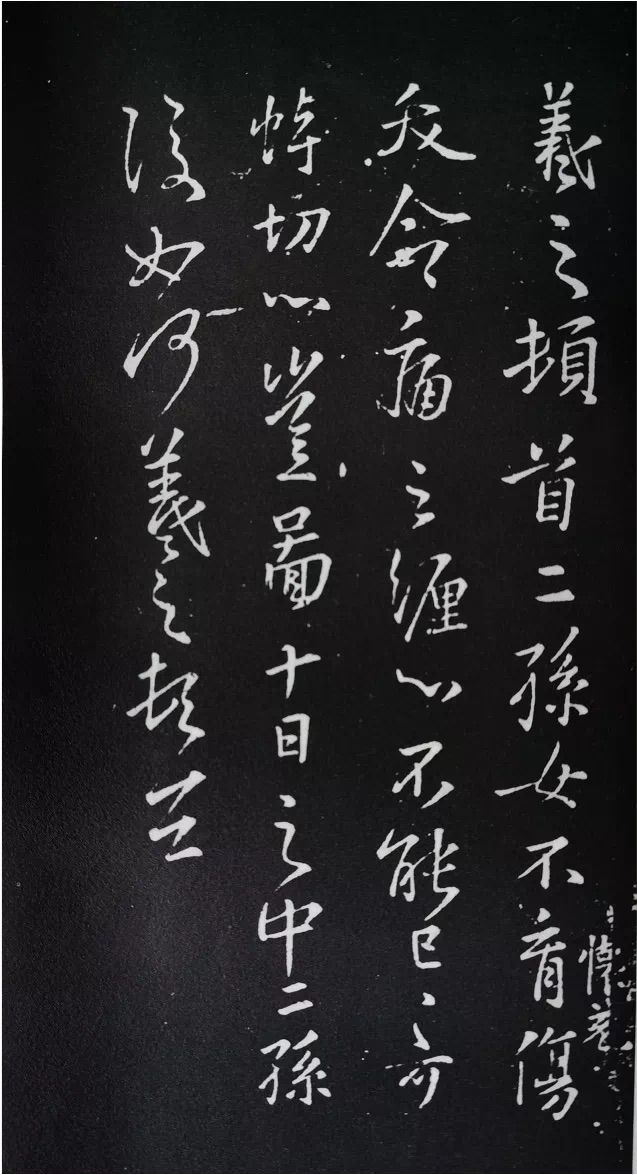 羲之頓首二孫女不育傷
夭命痛之纏心不能已〻可
悼切心豈圖十日之中二孫
復如何羲之頓首